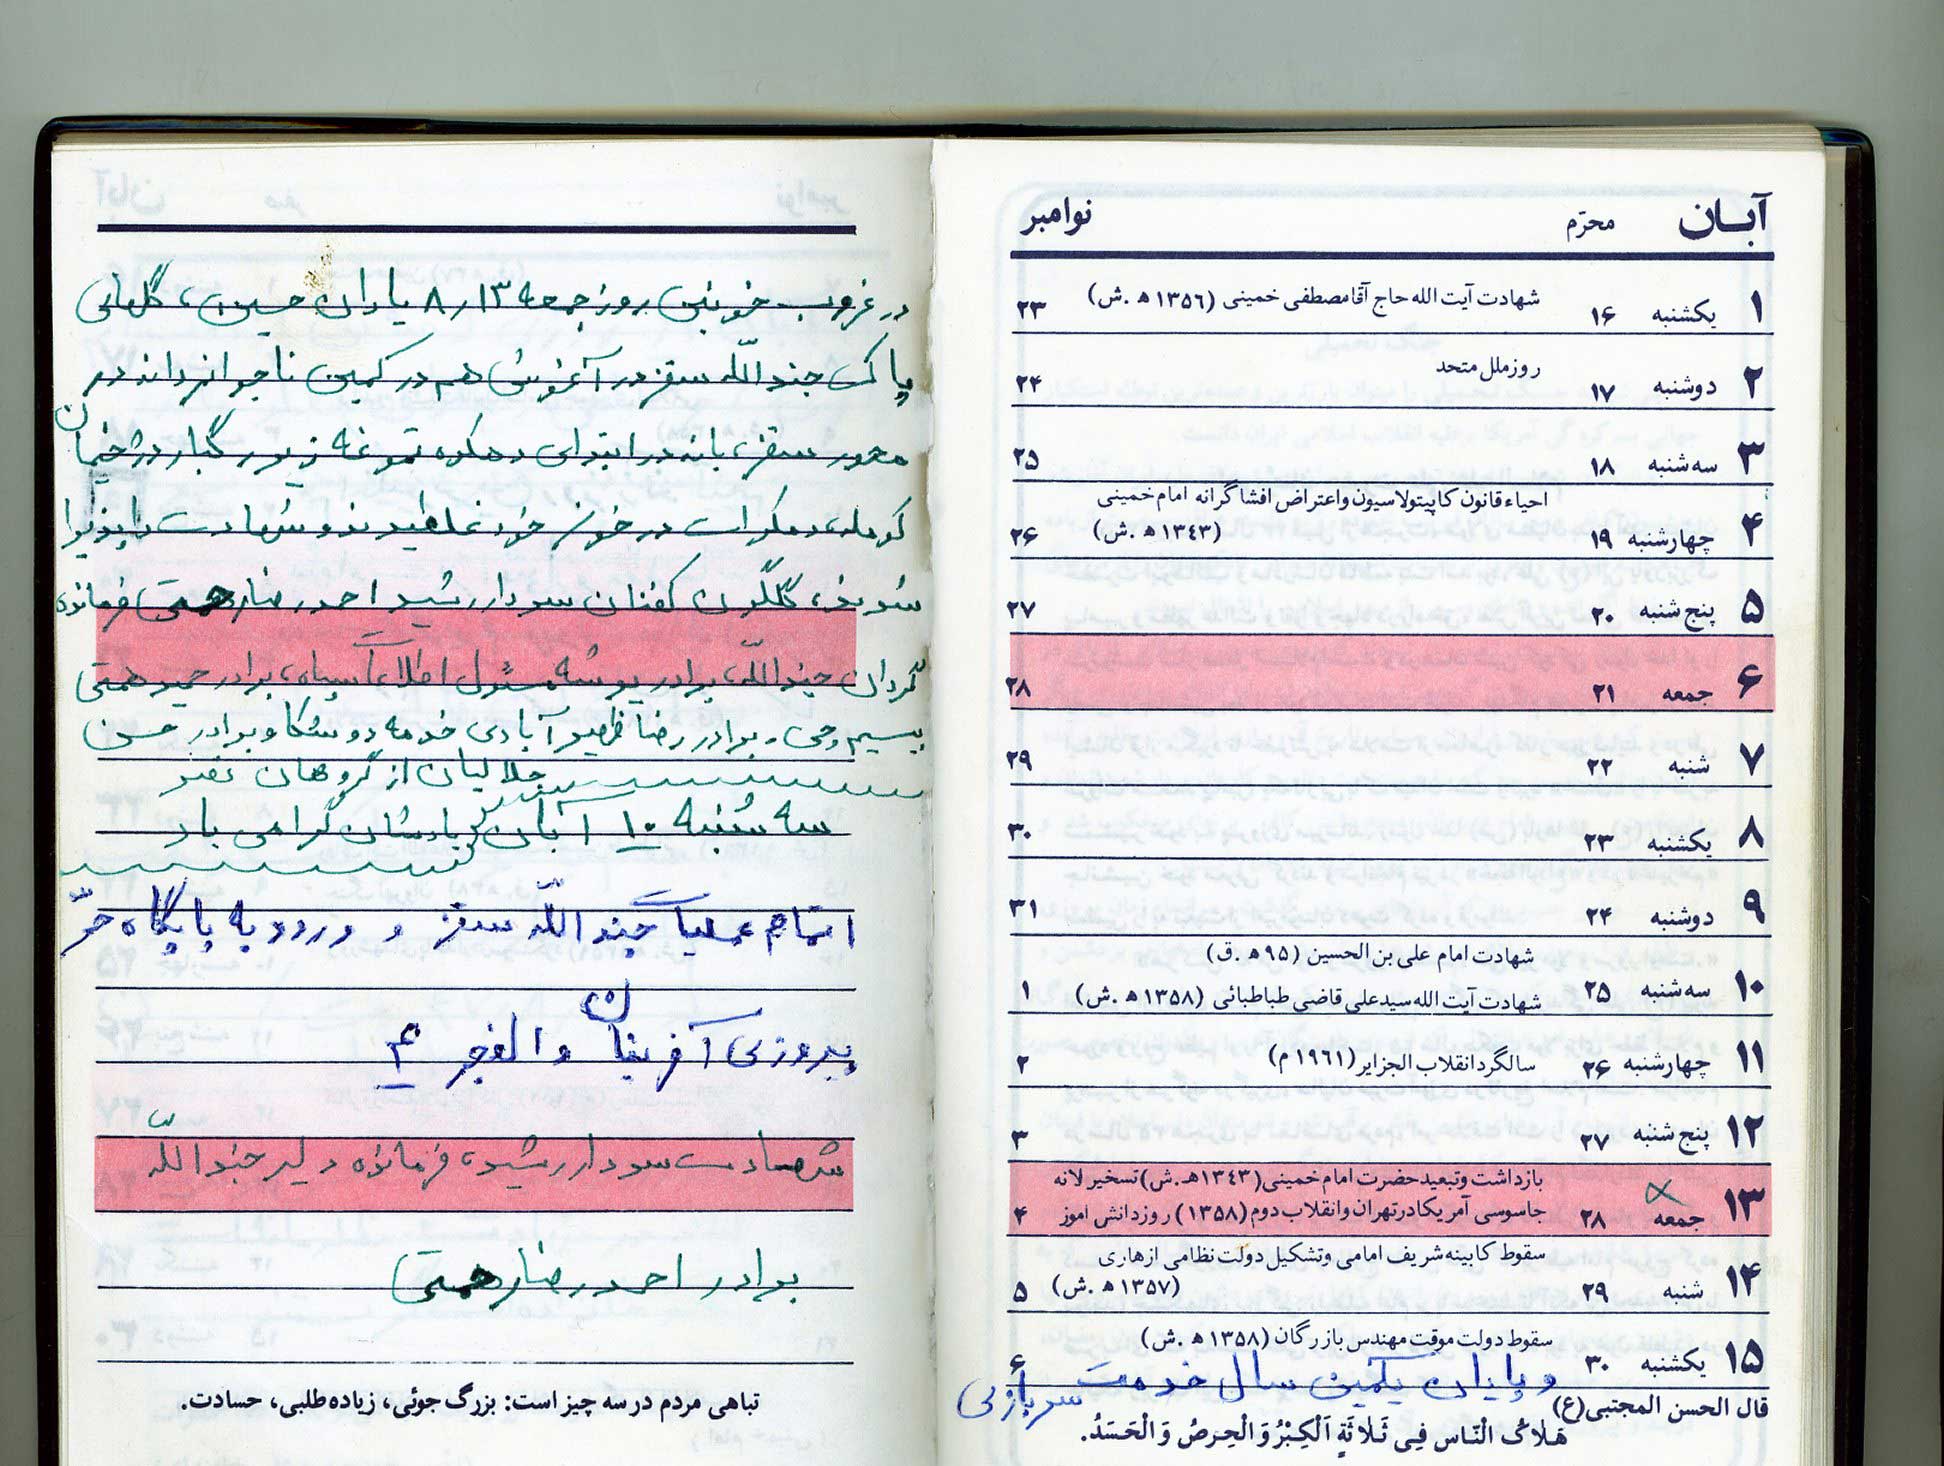 آبان محرّم نوامبر
۱ یکشنبه ۱۶ شهادت آیت الله حاج آقا مصطفی خمینی (۱۳۵۶ ه .ش) ۲۳
۲ دوشنبه ۱۷ روز ملل متحد ۲۴
۳ سه شنبه ۱۸ ۲۵
احیاء قانون کاپیتولاسیون واعتراض افشاگرانه امام خمینی
۴ چهارشنبه ۱۹ (۱۳۴۳ ه .ش) ۲۶
۵ پنج شنبه ۲۰ ۲۷
۶ جمعه ۲۱ ۲۸
۷ شنبه ۲۲ ۲۹
۸ یکشنبه ۲۳ ۳۰
۹ دوشنبه ۲۴ ۳۱
شهادت امام علی بن الحسین (۹۵ ه .ق)
۱۰ سه شنبه ۲۵ شهادت آیت الله سیدعلی قاضی طباطبائی (۱۳۵۸ ه .ش) ۱
۱۱ چهارشنبه ۲۶ سالگرد انقلاب الجزایر (۱۹۶۱ م) ۲
۱۲ پنج شنبه ۲۷ ۳
بازداشت وتبعید حضرت امام خمینی (۱۳۴۳ ه.ش) تسخیر لانه
۱۳ جمعه ۲۸ جاسوسی آمریکا در تهران وانقلاب دوم (۱۳۵۸) روز دانش آموز ۴
سقوط کابینه شریف امامی وتشکیل دولت نظامی ازهاری
۱۴ شنبه ۲۹ (۱۳۵۷ ه .ش) ۵
سقوط دولت موقت مهندس بازرگان (۱۳۵۸ ه .ش)
۱۵ یکشنبه ۳۰ و پایان یکمین سال خدمت سربازی ۶
قال الحسن المجتبی (ع)
هَلاکُ النّاس فِی ثَلاثَةٍ اَلْکِبْرُ وَالْحِرصُ وَالْحَسَدُ.
در غروب خونین روز جمعه ۸٫۱۳ یاران حسین، گلهای
پاک جندالله سقز در آغوش هم در کمین ناجوانمردانه در
محور سقز، بانه در ابتدای دهکده تموغه زیر رگبار دژخیمان
کومله، دمکرات در خون خود غلطیدند و شهادت را پذیرا
شدند، گلگون کفنان سردار رشید احمدرضا رحمتی فرمانده
گردان جندالله، برادر پوشه مسئول اطلاعات سپاه، برادر حمید همتی
بیسیم چی، برادر رضا ظهیرآبادی خدمه دوشکا و برادر حسن
جلالیان از گروهان نفر
سه شنبه ۱۰ آبان یادشان گرامی باد
اتمام عملیات جندالله سقز و ورود به پایگاه حرّ
پیروزی آفرینان والفجر ۴
شهادت سردار رشید، فرمانده دلیر جندالله
برادر احمدرضا رحمتی
تباهی مردم در سه چیز است: بزرگ جوئی، زیاده طلبی، حسادت.